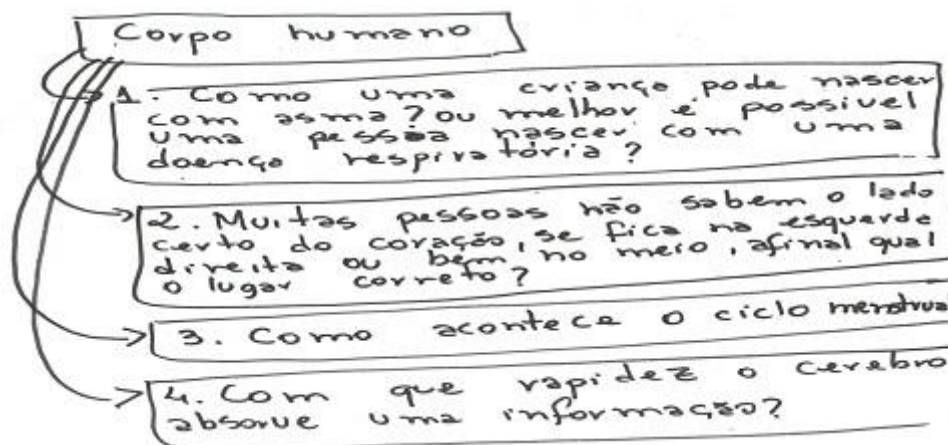 Corpo humano
1. Como uma criança pode nascer
com asma? ou melhor é possível
uma pessoa nascer com uma
doença respiratória?
2. Muitas pessoas não sabem o lado
certo do coração, se fica na esquerda
direita ou bem no meio, afinal qual
o lugar correto?
3. Como acontece o ciclo menstrua
4. Com que rapidez o cerebro
absorve uma informação?